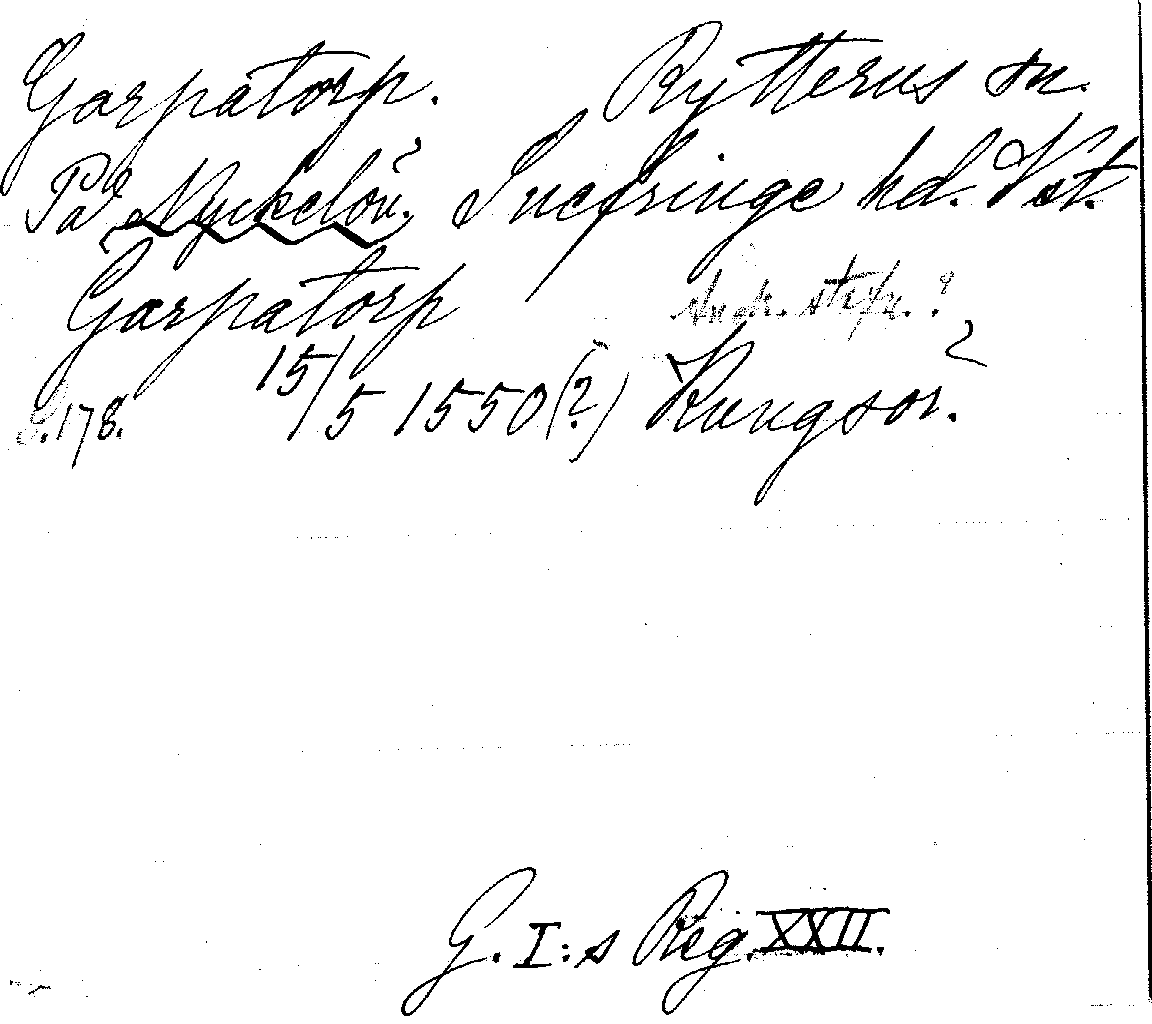 Garpatorp. Rytterus sn.
På Nyckelön, Snefringe hd. Vst.
Garpatorp
S. 178. 15/5 1550 (?) Kungsör.
G. I:s Reg. XXII.